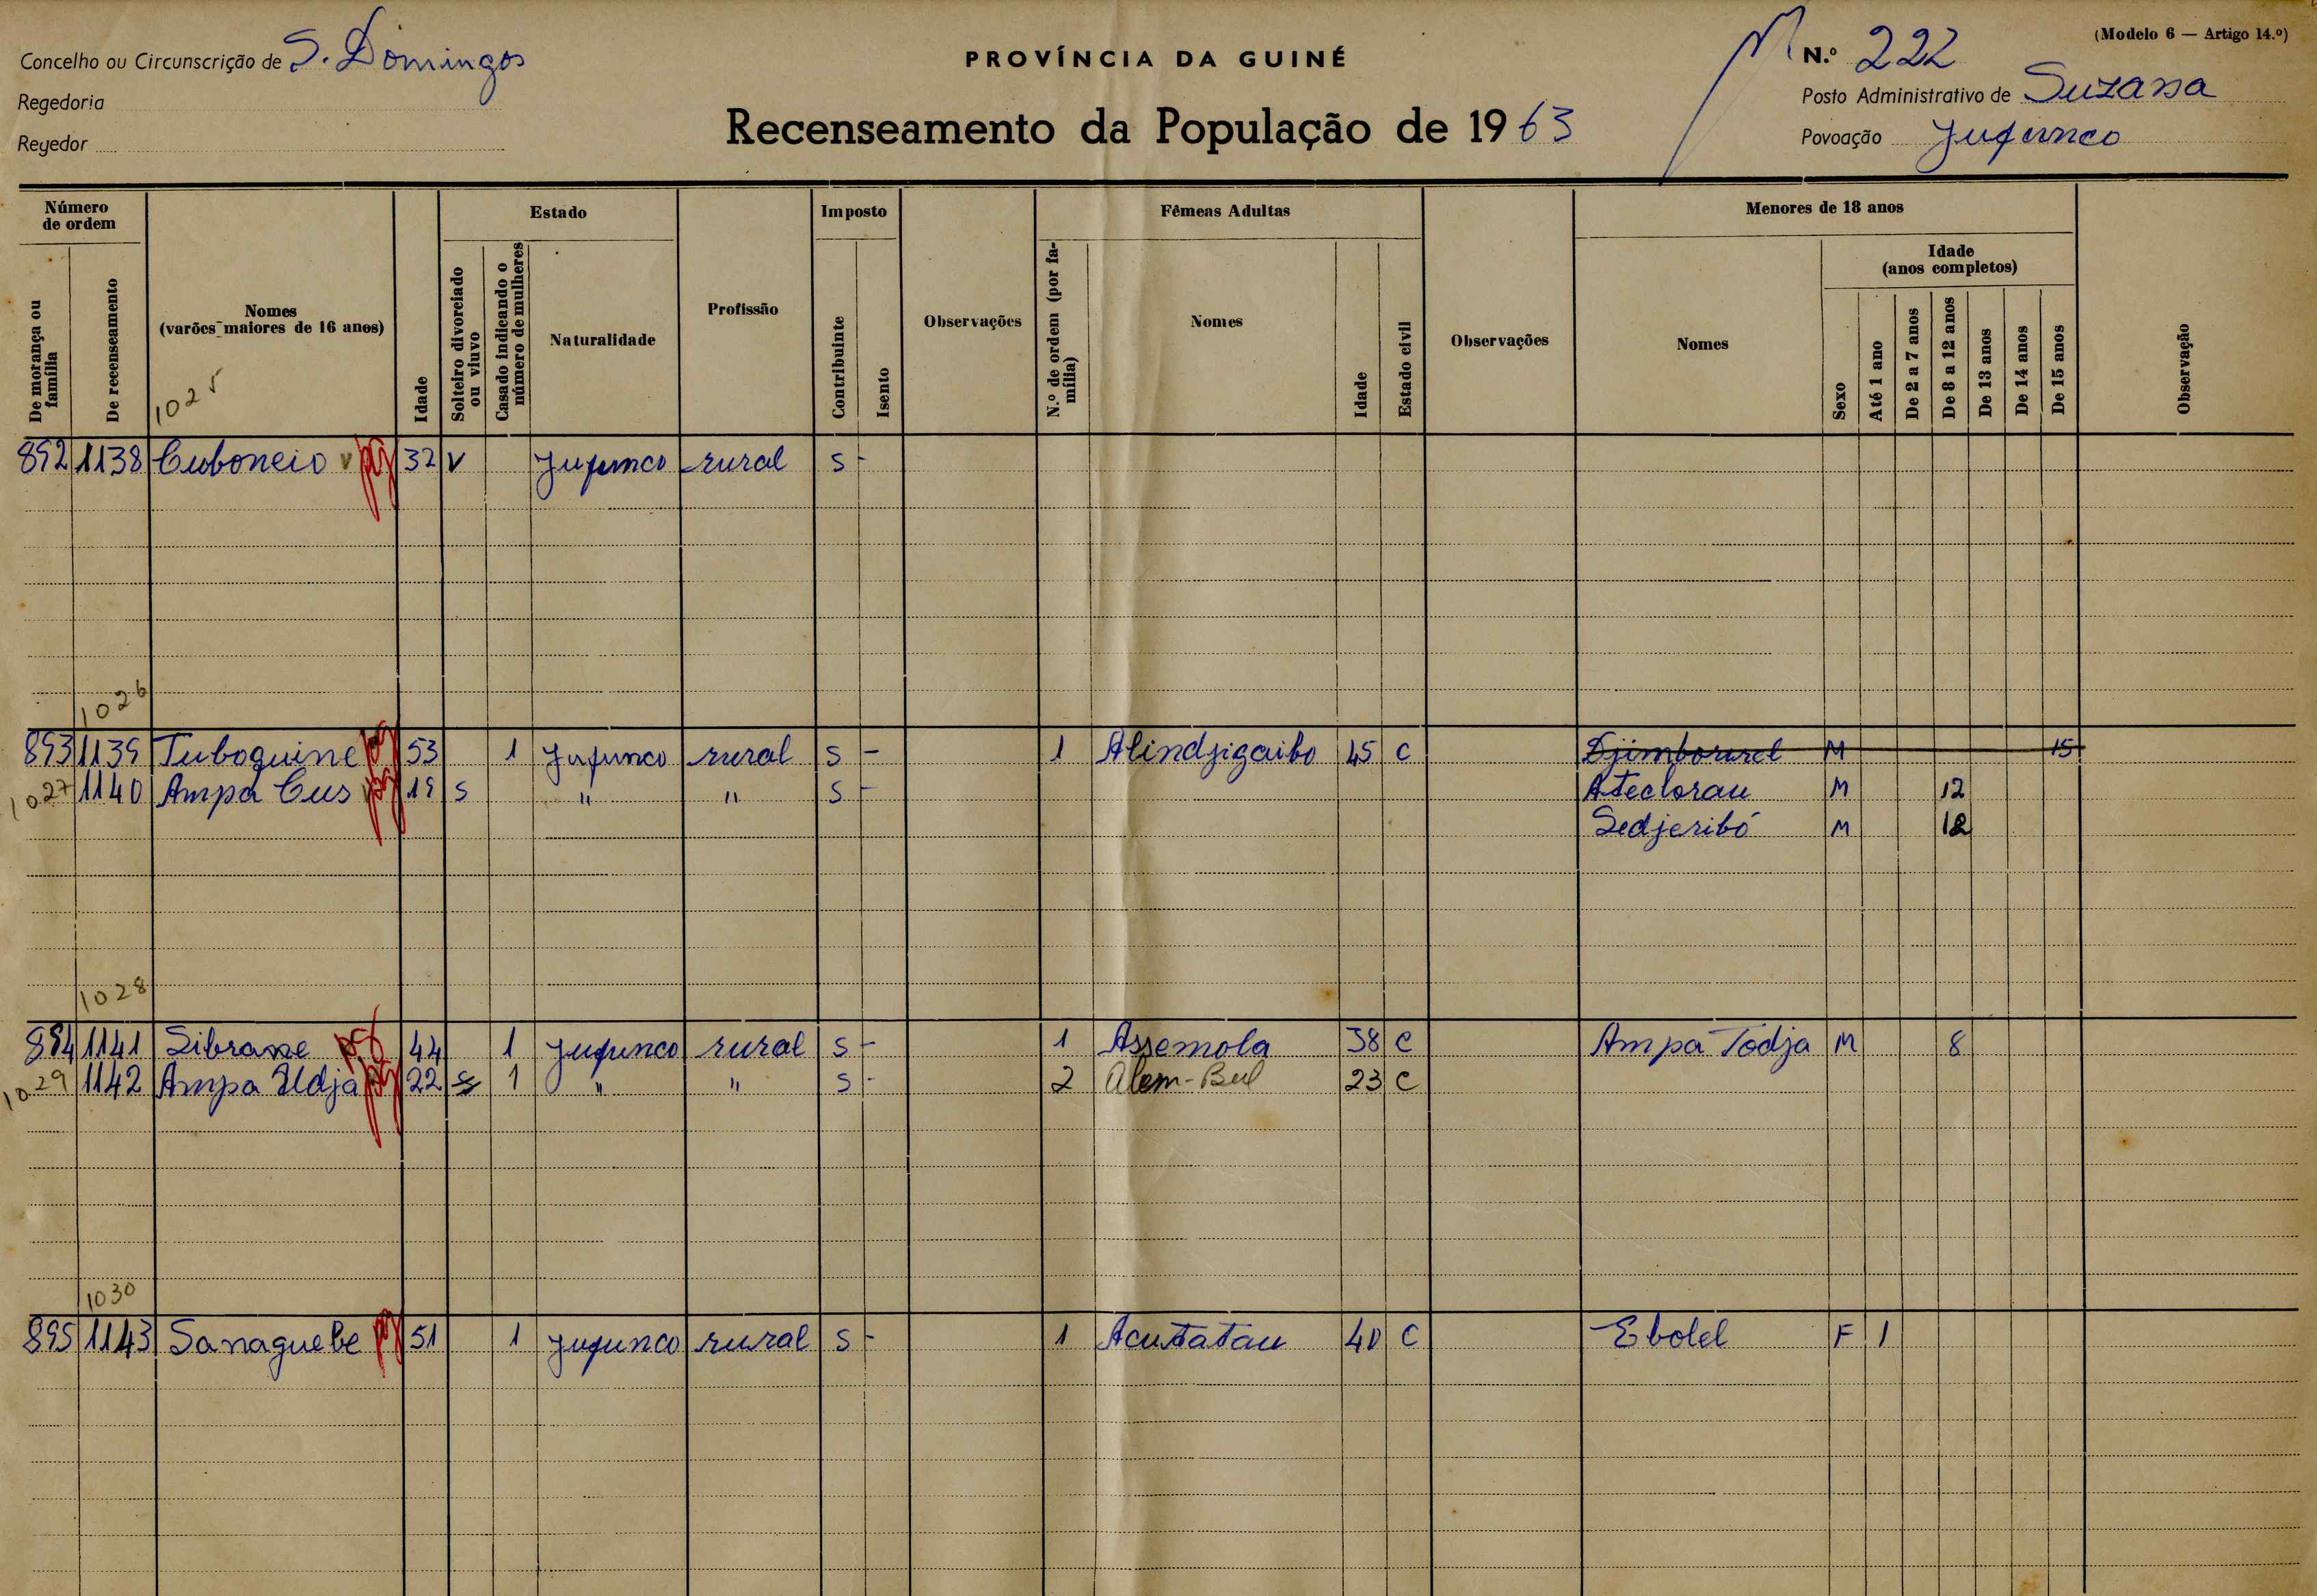 (Modelo 6 — Artigo 14.º)
Concelho ou Circunscrição de S. Domingos
PROVÍNCIA DA GUINÉ
N.º 222
Regedoria
Recenseamento da População de 1963
Posto Administrativo de Suzana
Regedor
Povoação Jufunco
Número de ordem
Estado
Imposto
Fêmeas Adultas
Menores de 18 anos
Idade
(anos completos)
De morança ou família
De recenseamento
Nomes
(varões maiores de 16 anos)
Idade
Solteiro divorciado ou viuvo
Casado indicando o número de mulheres
Naturalidade
Profissão
Contribuinte
Isento
Observações
N.º de ordem (por família)
Nomes
Idade
Estado civil
Observações
Nomes
Sexo
Até 1 ano
De 2 a 7 anos
De 8 a 12 anos
De 13 anos
De 14 anos
De 15 anos
Observação
1025
892 1138 Cuboneio v pg 32 V Jufunco rural S -
1026
893 1139 Tuboguine pg 53 1 Jufunco rural S - 1 Alindjigaibo 45 C Djimborurel M 15
1027 1140 Ampa Cus pg 19 S " " S - Ateclorau M 12
Sedjeribó M 12
1028
894 1141 Sibrane pg 44 1 Jufunco rural S - 1 Assemola 38 C Ampa Todja M 8
1029 1142 Ampa Udja pg 22 S 1 " " S - 2 Alem-Bul 23 C
1030
895 1143 Sanaguebe pg 51 1 Jufunco rural S - 1 Acutatau 40 C Ebolel F 1